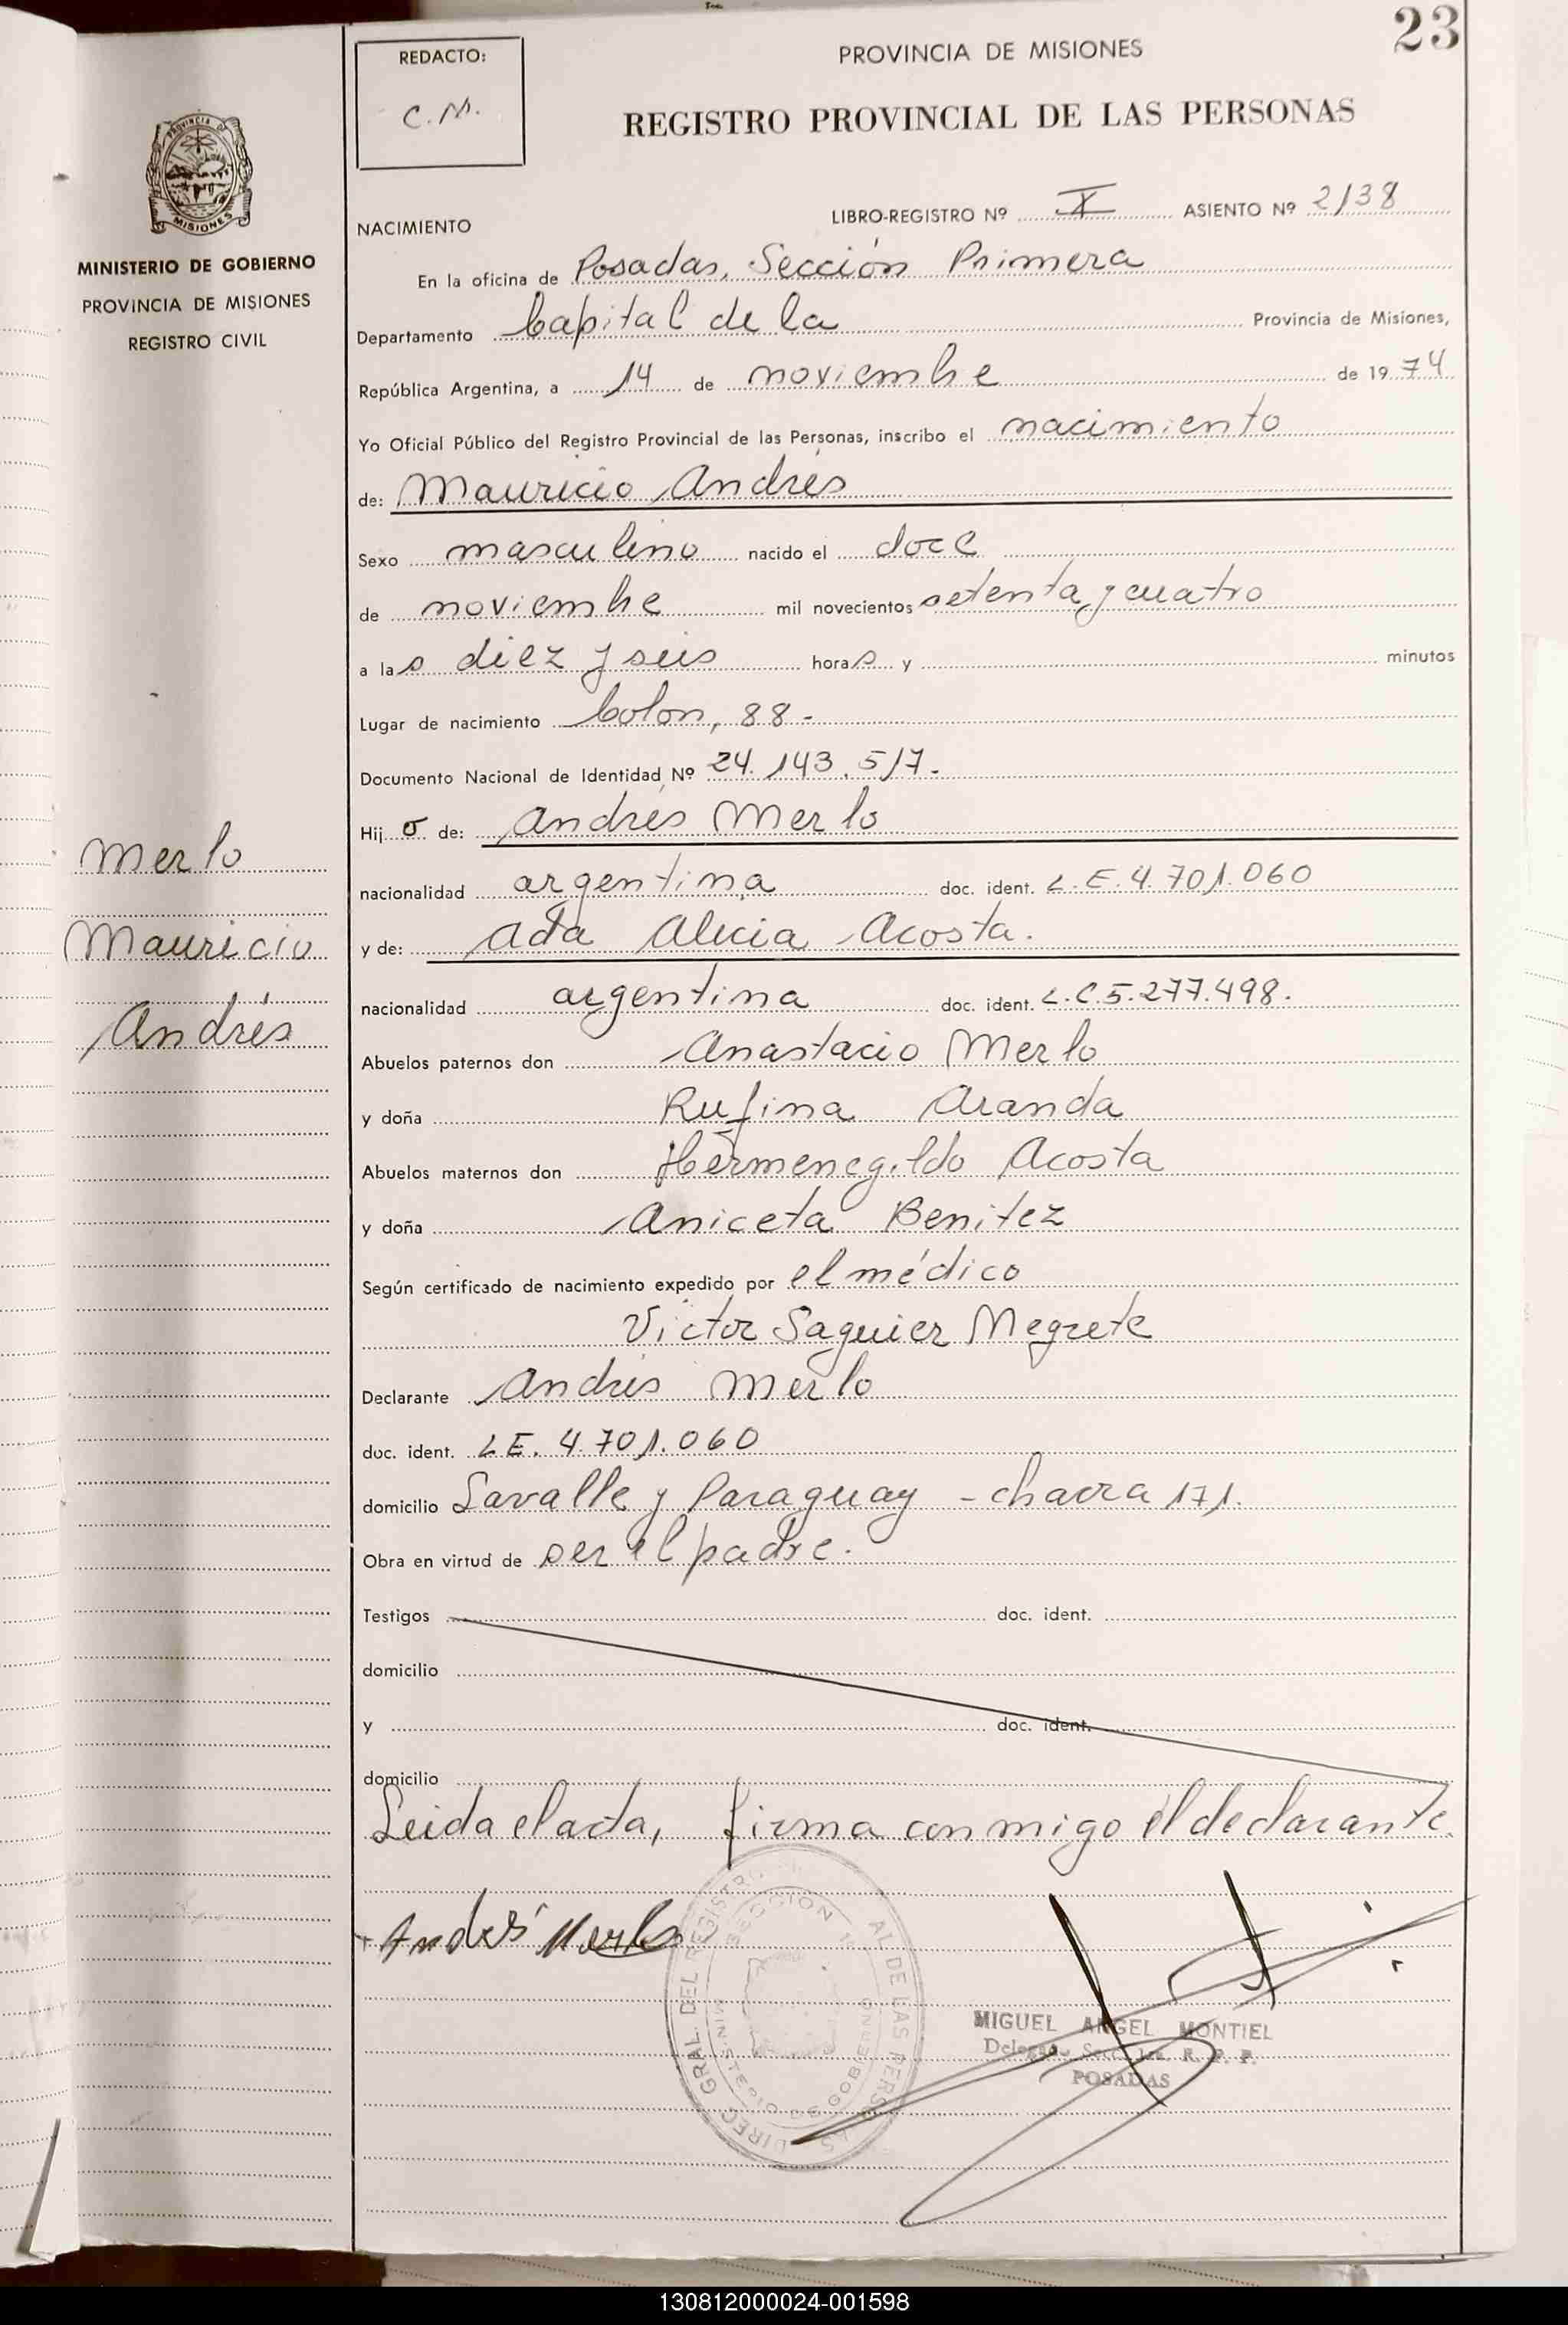 23
REDACTO:
C.M.
PROVINCIA DE MISIONES
REGISTRO PROVINCIAL DE LAS PERSONAS
MISIONES
MINISTERIO DE GOBIERNO
PROVINCIA DE MISIONES
REGISTRO CIVIL
NACIMIENTO
LIBRO-REGISTRO Nº X ASIENTO Nº 2138
En la oficina de Posadas, Sección Primera
Departamento Capital de la Provincia de Misiones,
República Argentina, a 14 de noviembre de 1974
Yo Oficial Público del Registro Provincial de las Personas, inscribo el nacimiento
de: Mauricio Andrés
Sexo masculino nacido el doce
de noviembre mil novecientos setenta y cuatro
a las diez y seis horas y minutos
Lugar de nacimiento Colon, 88-
Documento Nacional de Identidad Nº 24.143.517.-
Hijo de: Andrés Merlo
nacionalidad argentina doc. ident. L.E.4.701.060
y de: Ada Alicia Acosta.
nacionalidad argentina doc. ident. L.C.5.277.498.
Merlo
Mauricio
Andrés
Abuelos paternos don Anastacio Merlo
y doña Rufina Aranda
Abuelos maternos don Hermenegildo Acosta
y doña Aniceta Benitez
Según certificado de nacimiento expedido por el médico
Victor Saguier Negrete
Declarante Andrés Merlo
doc. ident. L.E. 4.701.060
domicilio Lavalle y Paraguay - chacra 171.
Obra en virtud de ser el padre.
Testigos doc. ident.
domicilio
y doc. ident.
domicilio
Leida el acta, firma conmigo el declarante.
Andrés Merlo
DIREC. GRAL. DEL REGISTRO AL DE LAS PERSONAS
SECCION 1ª
MINISTERIO DE GOBIERNO
MIGUEL ANGEL MONTIEL
Delegado Secc. 1ra. R. P. P.
POSADAS
130812000024-001598